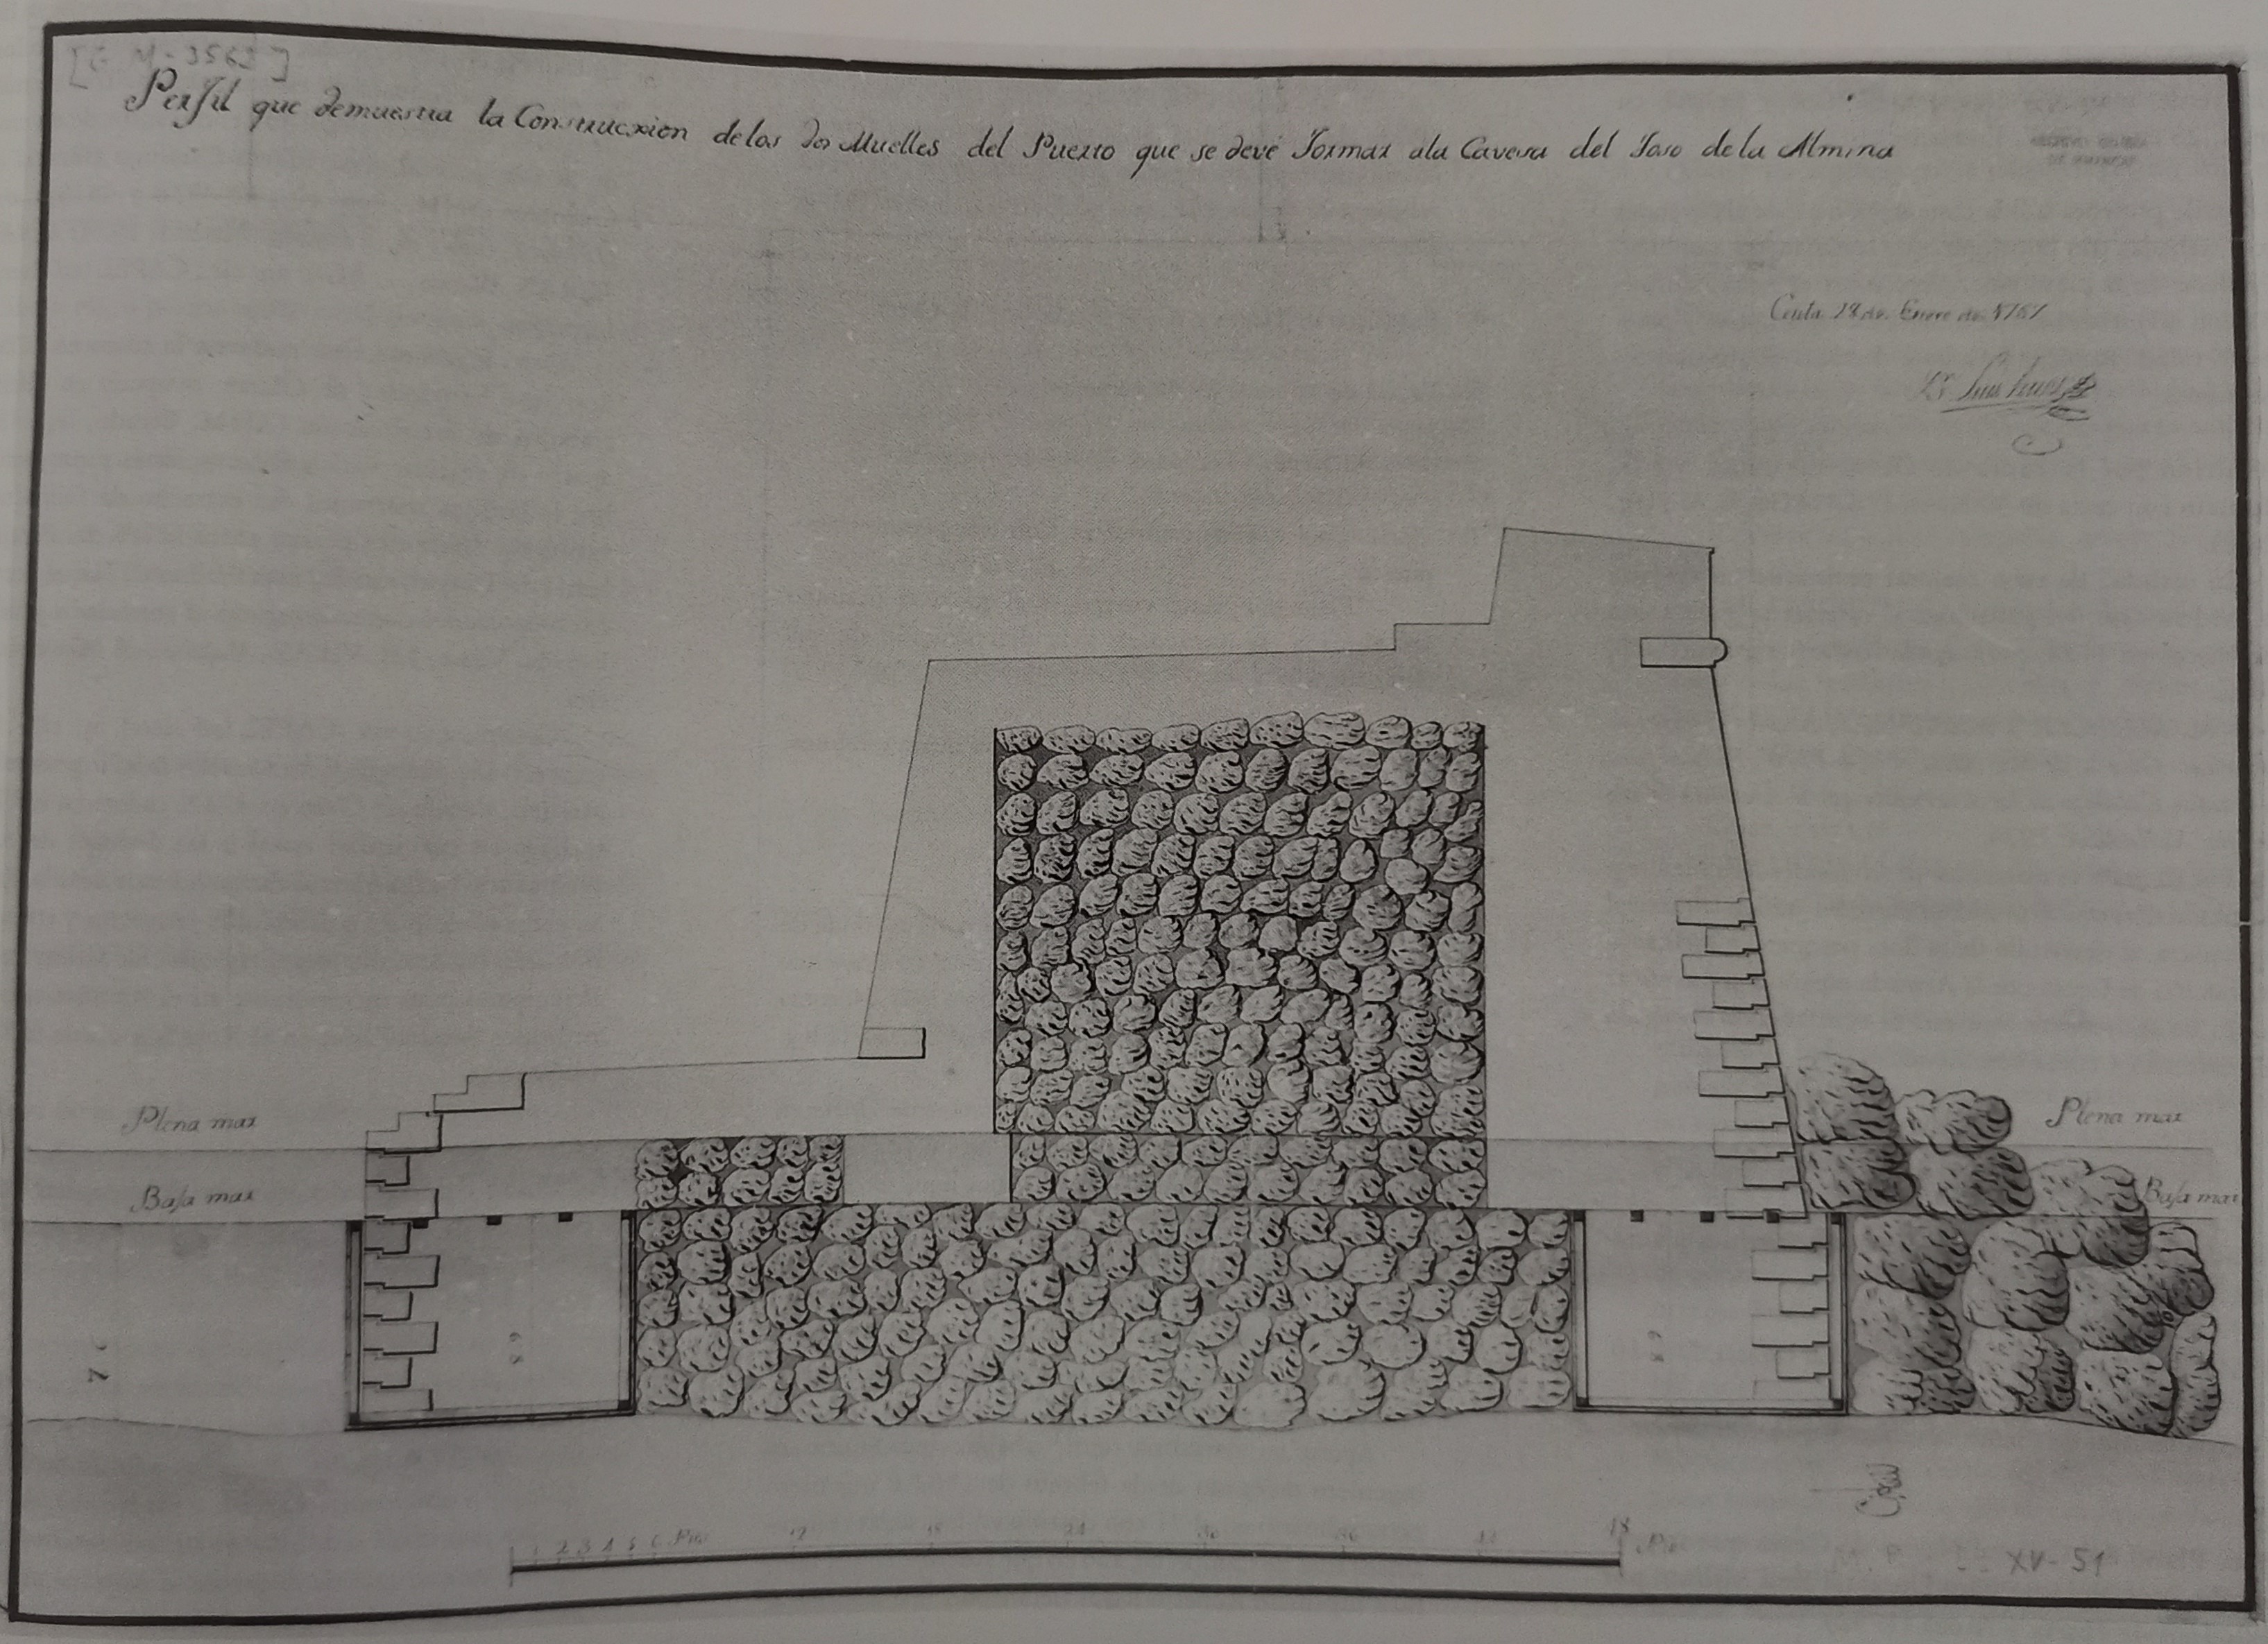 [G M-3563]
Perfil que demuestra la Construcxion de los dos Muelles del Puerto que se deve Formar a la Cavesa del Foso de la Almina
Ceuta 28 de Enero de
Plena mar
Plena mar
Baja mar
Baja mar
7
6 8
6 8
1 2 3 4 5 6 Pies 12 18 24 30 36 42 48 Pies
XV-51